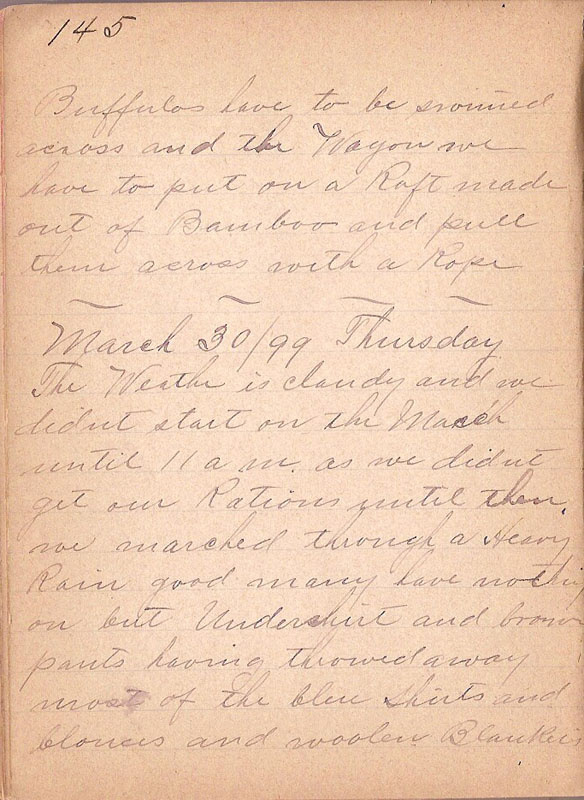 145
Buffulos have to be swimed
across and the Wagon we
have to put on a Raft made
out of Bamboo and pull
them across with a Rope
March 30/99 Thursday
The Weathe is cloudy and we
didnt start on the March
until 11 a m. as we didnt
get our Rations until then.
we marched through a Heavy
Rain good many have nothing
on but Undershirt and brown
pants having throwed away
most of the blue Shirts and
blouses and woolen Blankets